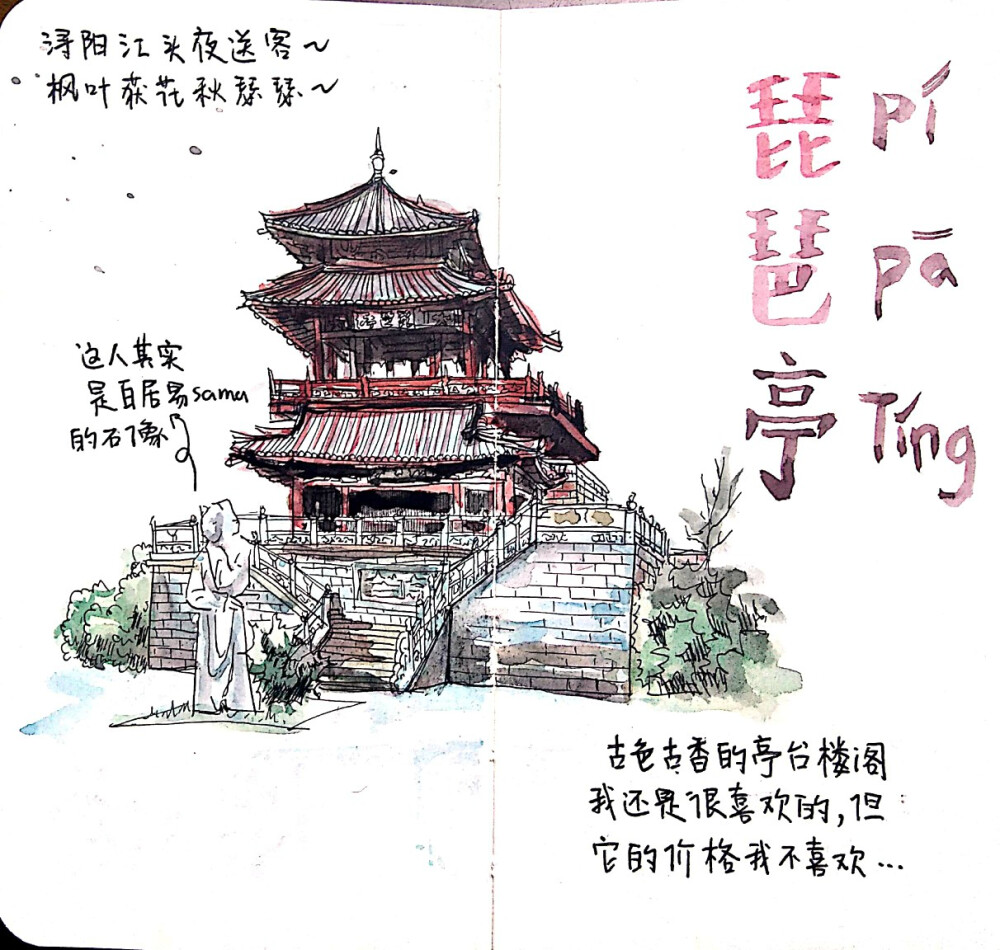 浔阳江头夜送客~
枫叶荻花秋瑟瑟~
琵 pí
琶 pā
亭 Tíng
琵琶亭
这人其实
是白居易sama
的石像
古色古香的亭台楼阁
我还是很喜欢的,但
它的价格我不喜欢...